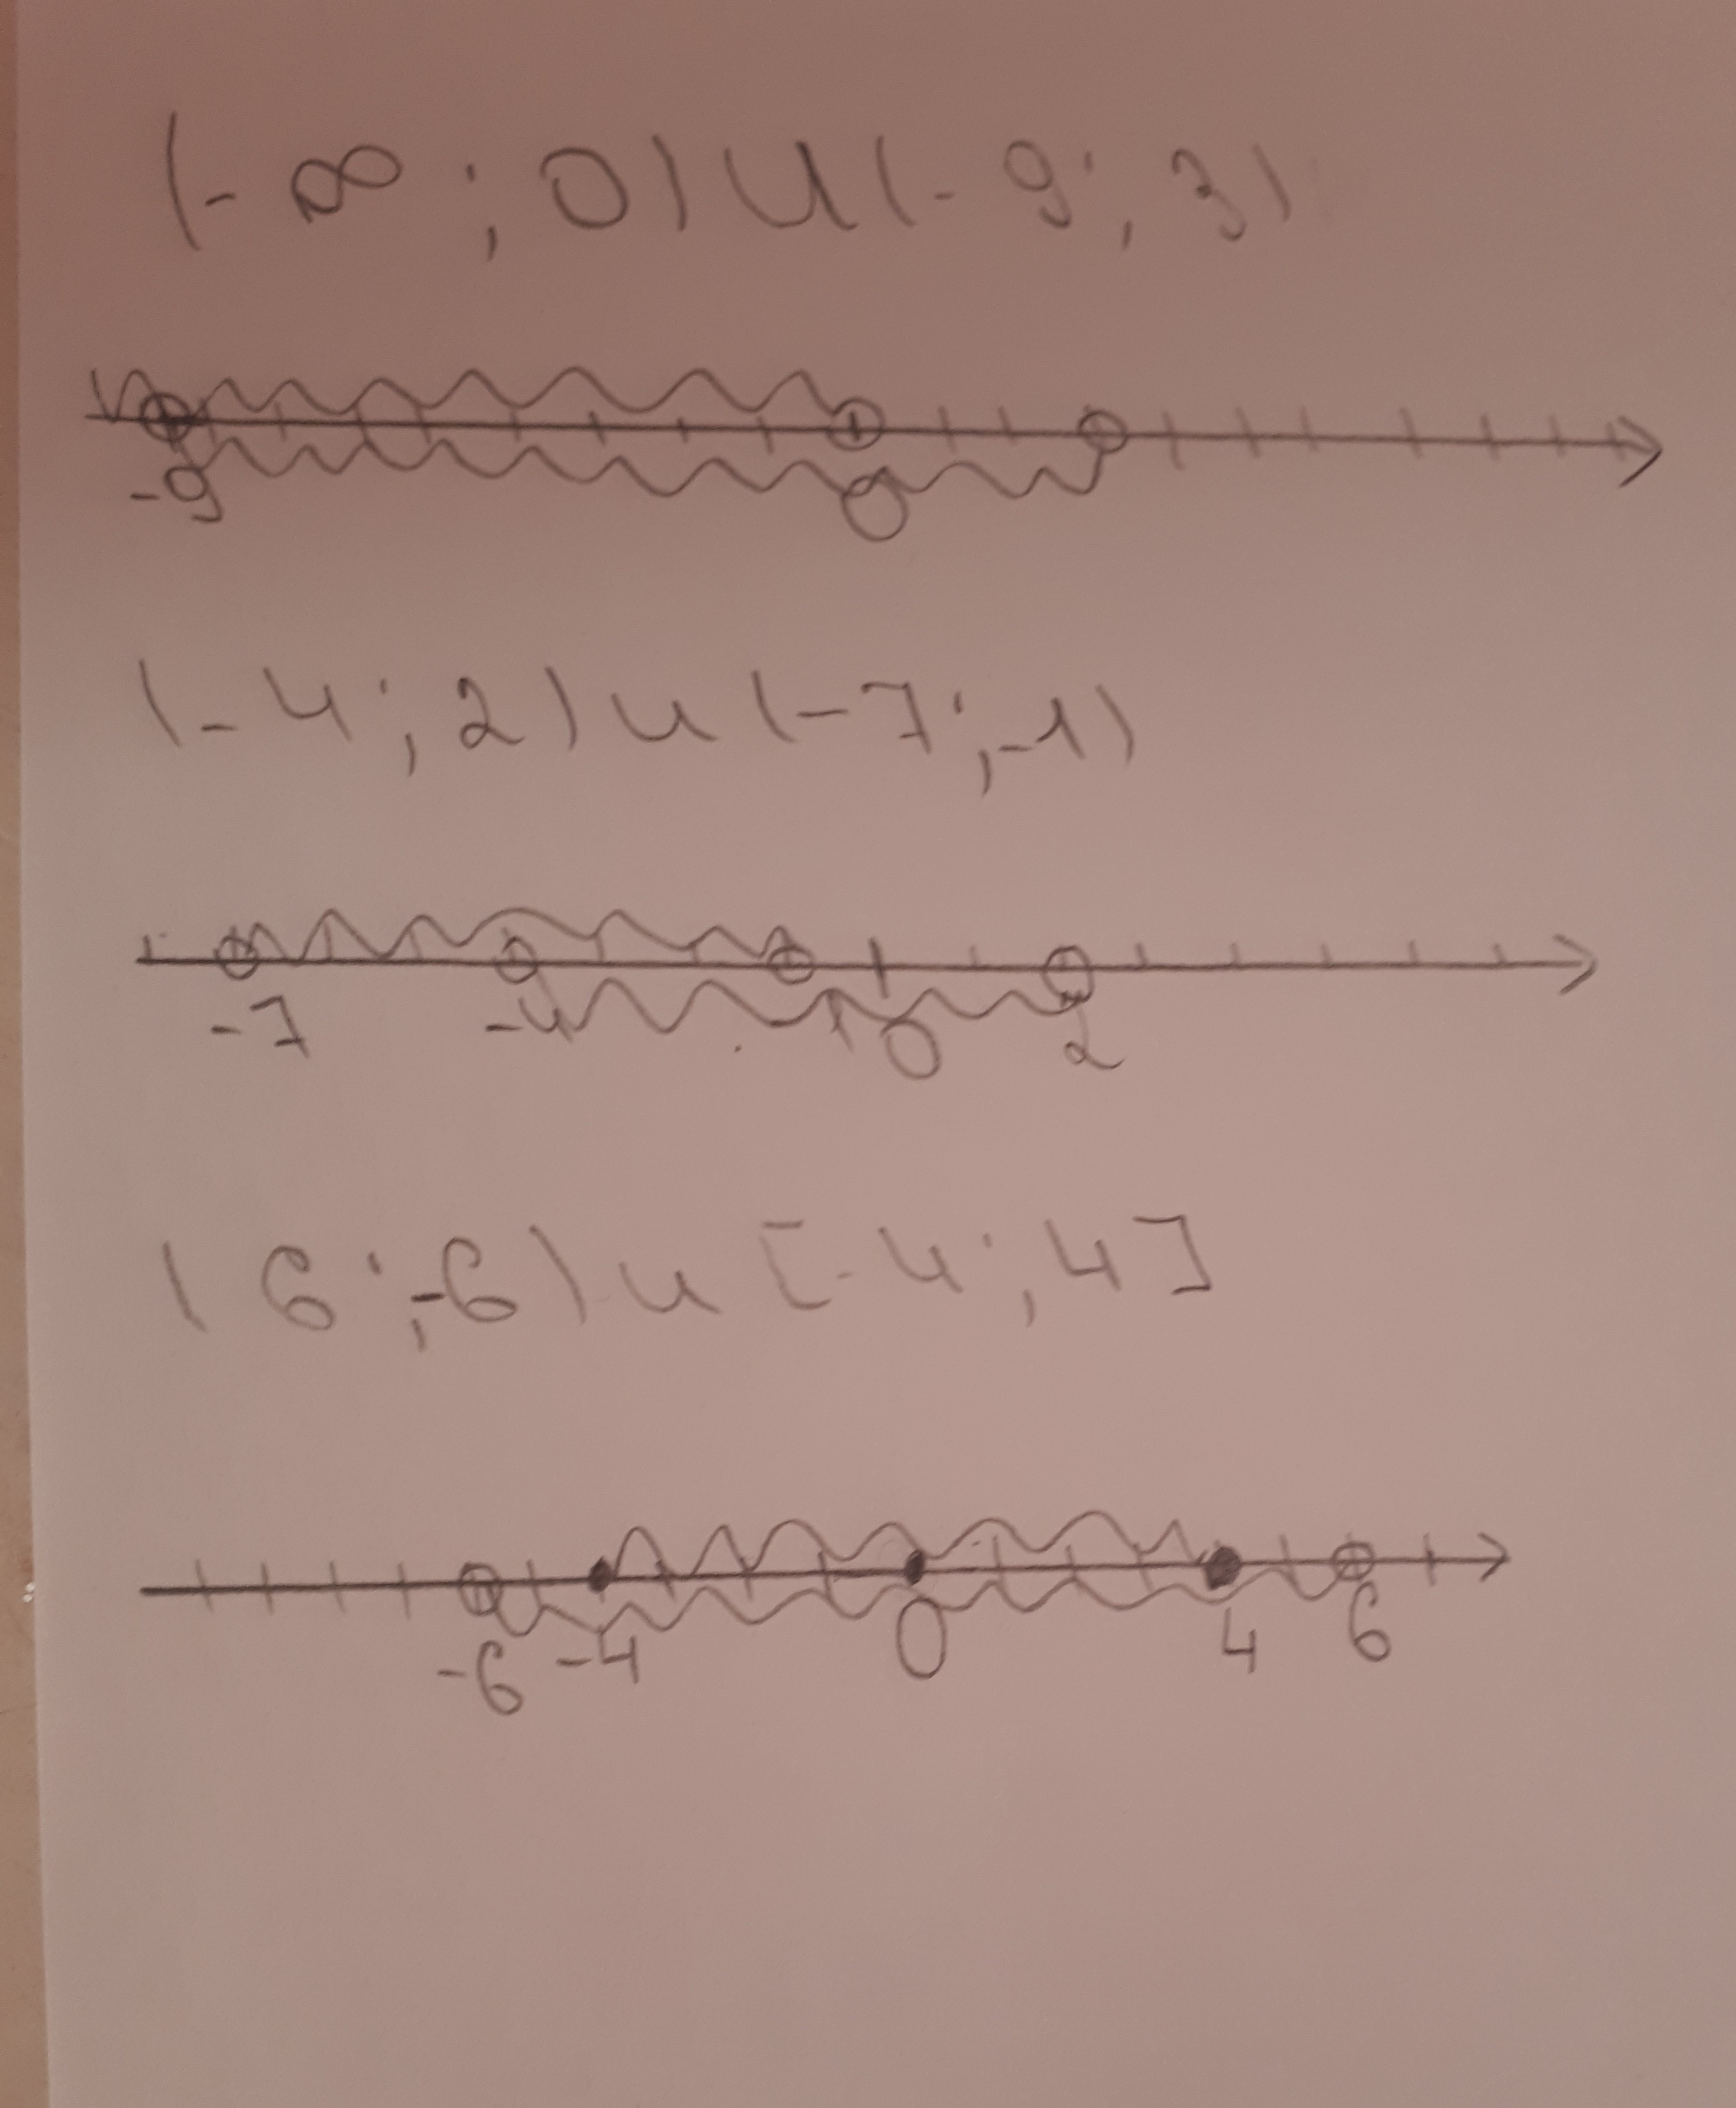 (-∞; 0) U (-9; 3)
-9 0
(-4; 2) u (-7; -1)
-7 -4 -1 0 2
(6; -6) u [-4; 4]
-6 -4 0 4 6